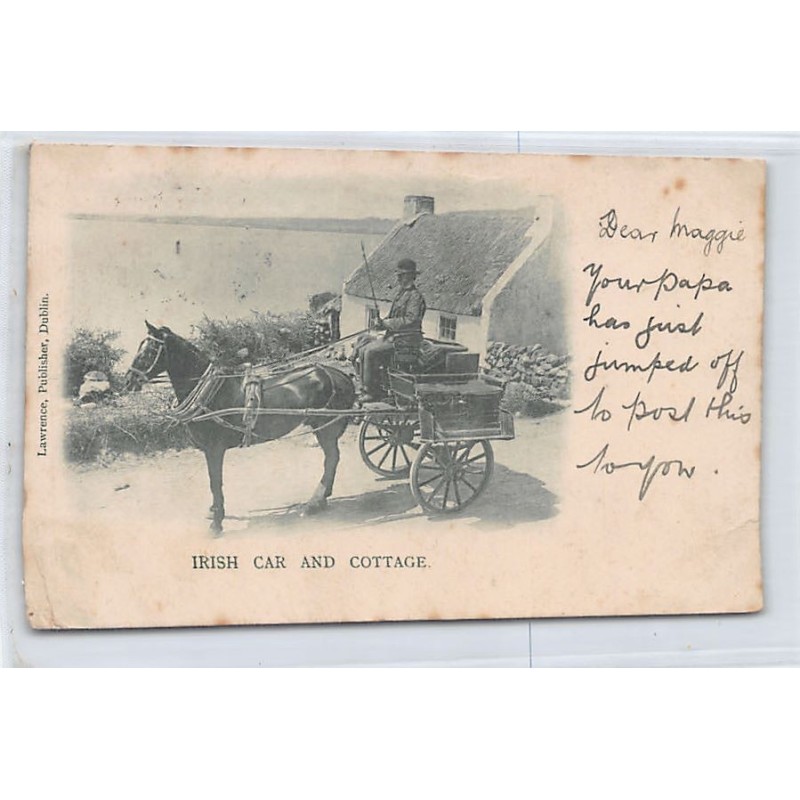 Lawrence, Publisher, Dublin.
IRISH CAR AND COTTAGE.
Dear Maggie
Your Papa
has just
jumped off
to post this
to you.